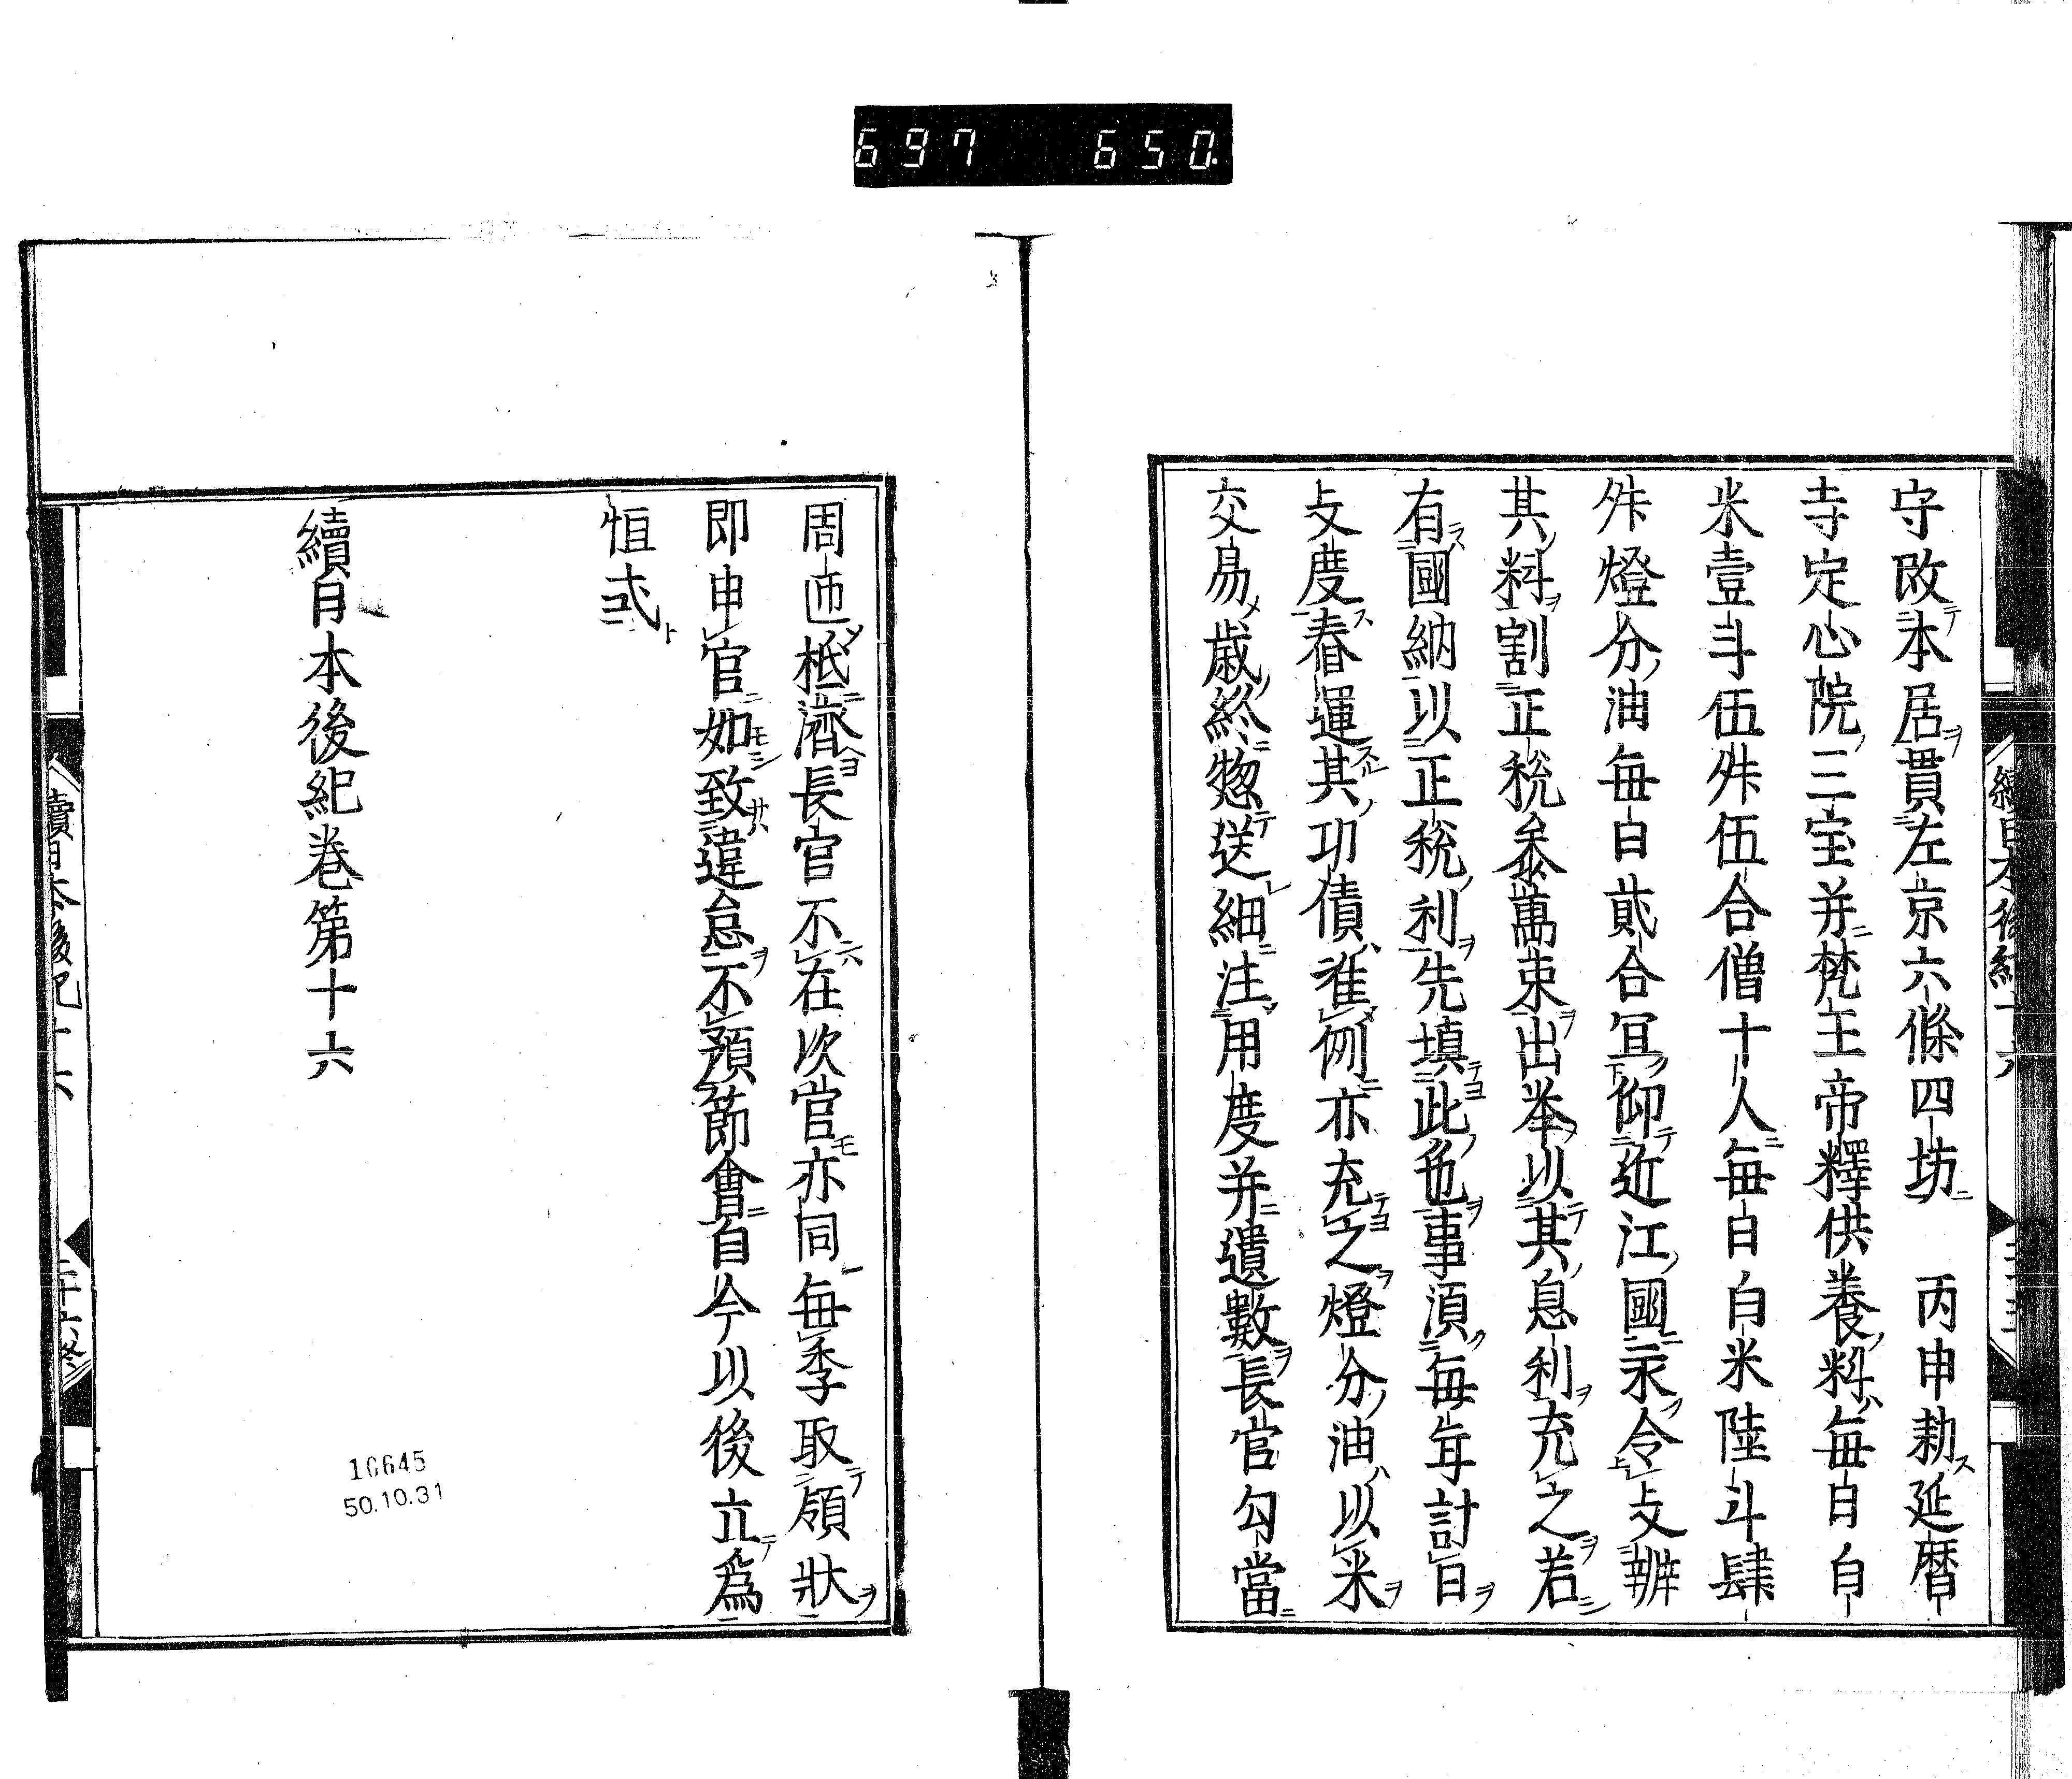 697 650.
守改本居貫左京六條四坊 丙申勅延暦
寺定心院三宝并梵王帝釋供養料毎日白
米壹斗伍舛伍合僧十人毎日白米陸斗肆
舛燈分油毎日貮合冝仰近江國永令攴辨
其料割正税叅萬束出举以其息利充之若
有國納以正税利先填此色事湏毎年計日
攴度舂運其功債准例亦充之燈分油以米
交易歳終惣送細注用度并遺數長官勾當
周迊秪濟長官不在次官亦同毎季取領狀
即申官如致違怠不預節會自今以後立為
恒式
續日本後紀巻第十六
16645
50.10.31